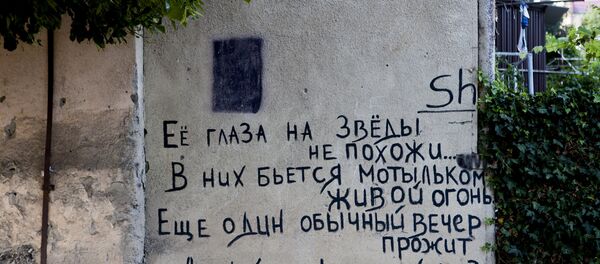 Sh
Её глаза на звёды
не похожи...
В них бьется мотыльком
живой огонь
Еще один обычный вечер
прожит